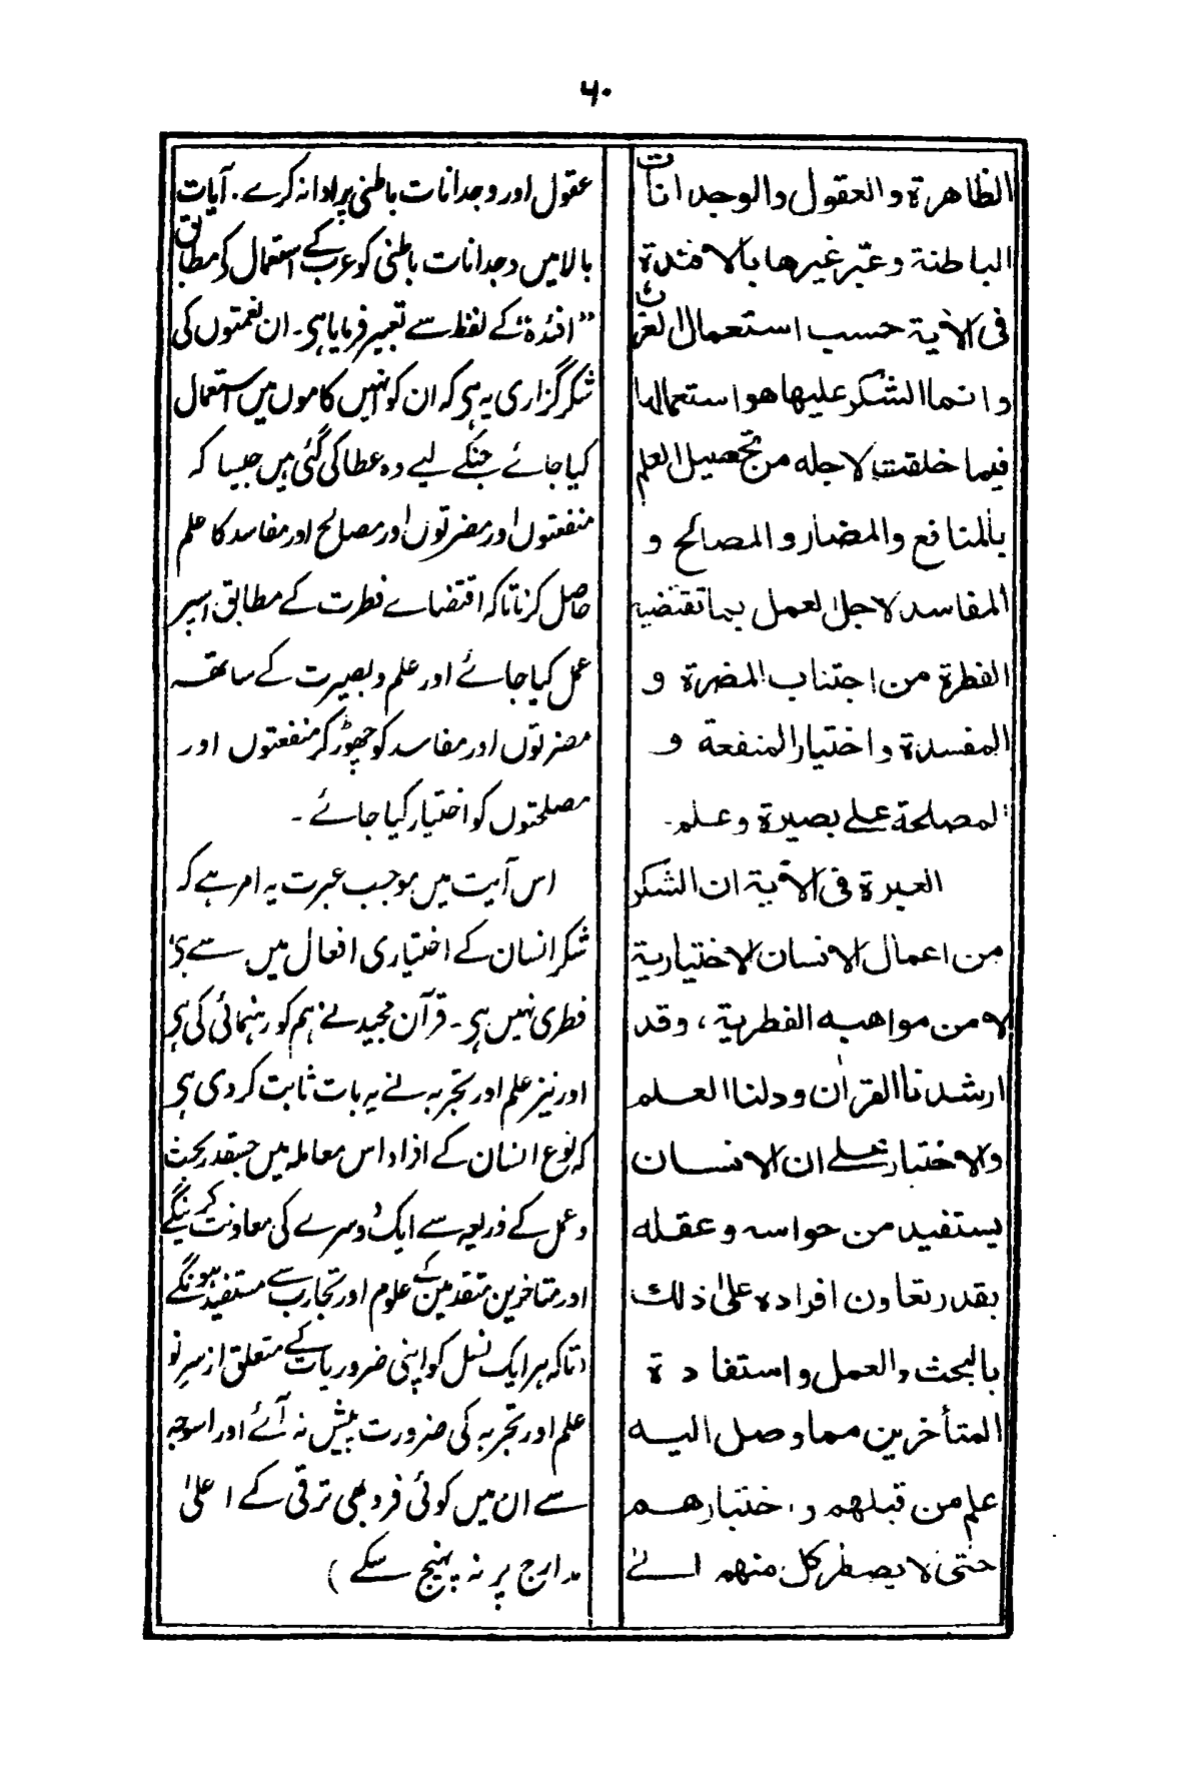 ۶۰
الظاهرة والعقول والوجدانات
الباطنة وعبّر غيرها بالافئدة
فى الآية حسب استعمال العرب
وانما الشكر عليها هو استعمالها
فيما خلقت لاجله من تحصيل العلم
بالمنافع والمضار والمصالح و
المفاسد لاجل العمل بما تقتضيه
الفطرة من اجتناب المضرة و
المفسدة واختيار المنفعة و
المصلحة على بصيرة وعلم۔
العبرة فى الآية ان الشكر
من اعمال الانسان الاختيارية
لا من مواهبه الفطرية، وقد
ارشدنا القران ودلنا العلم
والاختبار على ان الانسان
يستفيد من حواسه وعقله
بقدر تعاون افراده علىٰ ذلك
بالبحث والعمل واستفادة
المتأخرين مما وصل اليه
علم من قبلهم واختبارهم
حتى لا يضطر كل منهم الىٰ
عقول اور وجدانات باطنی پر ادا نہ کرے۔ آیات
بالا میں وجدانات باطنی کو عرب کے استعمال کے مطابق
”افئدۃ“ کے لفظ سے تعبیر فرمایا ہی۔ ان نعمتوں کی
شکر گزاری یہ ہی کہ ان کو انہیں کاموں میں استعمال
کیا جائے جنکے لیے وہ عطا کی گئی ہیں جیسا کہ
منفعتوں اور مضرتوں اور مصالح اور مفاسد کا علم
حاصل کرنا تاکہ اقتضاے فطرت کے مطابق اسپر
عمل کیا جائے اور علم و بصیرت کے ساتھ
مضرتوں اور مفاسد کو چھوڑ کر منفعتوں اور
مصلحتوں کو اختیار کیا جائے۔
اس آیت میں موجب عبرت یہ امر ہے کہ
شکر انسان کے اختیاری افعال میں سے ہی
فطری نہیں ہی۔ قرآن مجید نے ہم کو رہنمائی کی ہی
اور نیز علم اور تجربہ نے یہ بات ثابت کر دی ہی
کہ نوع انسان کے افراد اس معاملہ میں جسقدر بحث
و عمل کے ذریعہ سے ایک دوسرے کی معاونت کرینگے
اور متاخرین متقدمین کے علوم اور تجارب سے مستفید ہونگے
(تاکہ ہر ایک نسل کو اپنی ضروریات کے متعلق از سر نو
علم اور تجربہ کی ضرورت پیش نہ آئے اور اسوجہ
سے ان میں کوئی فرد بھی ترقی کے اعلیٰ
مدارج پر نہ پہنچ سکے)